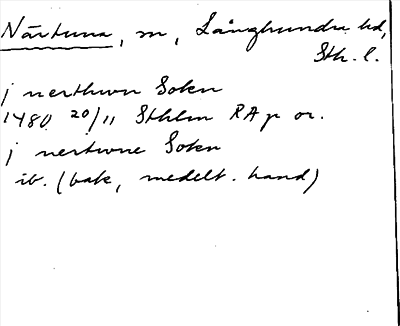 Närtuna, sn, Långhundra hd,
Sth. l.
j nerthwn Sokn
1480 20/11 Sthlm RAp or.
j nertwne Sokn
ib. (bak, medelt. hand)